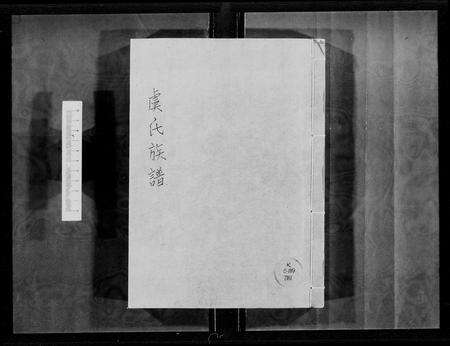 虞氏族譜